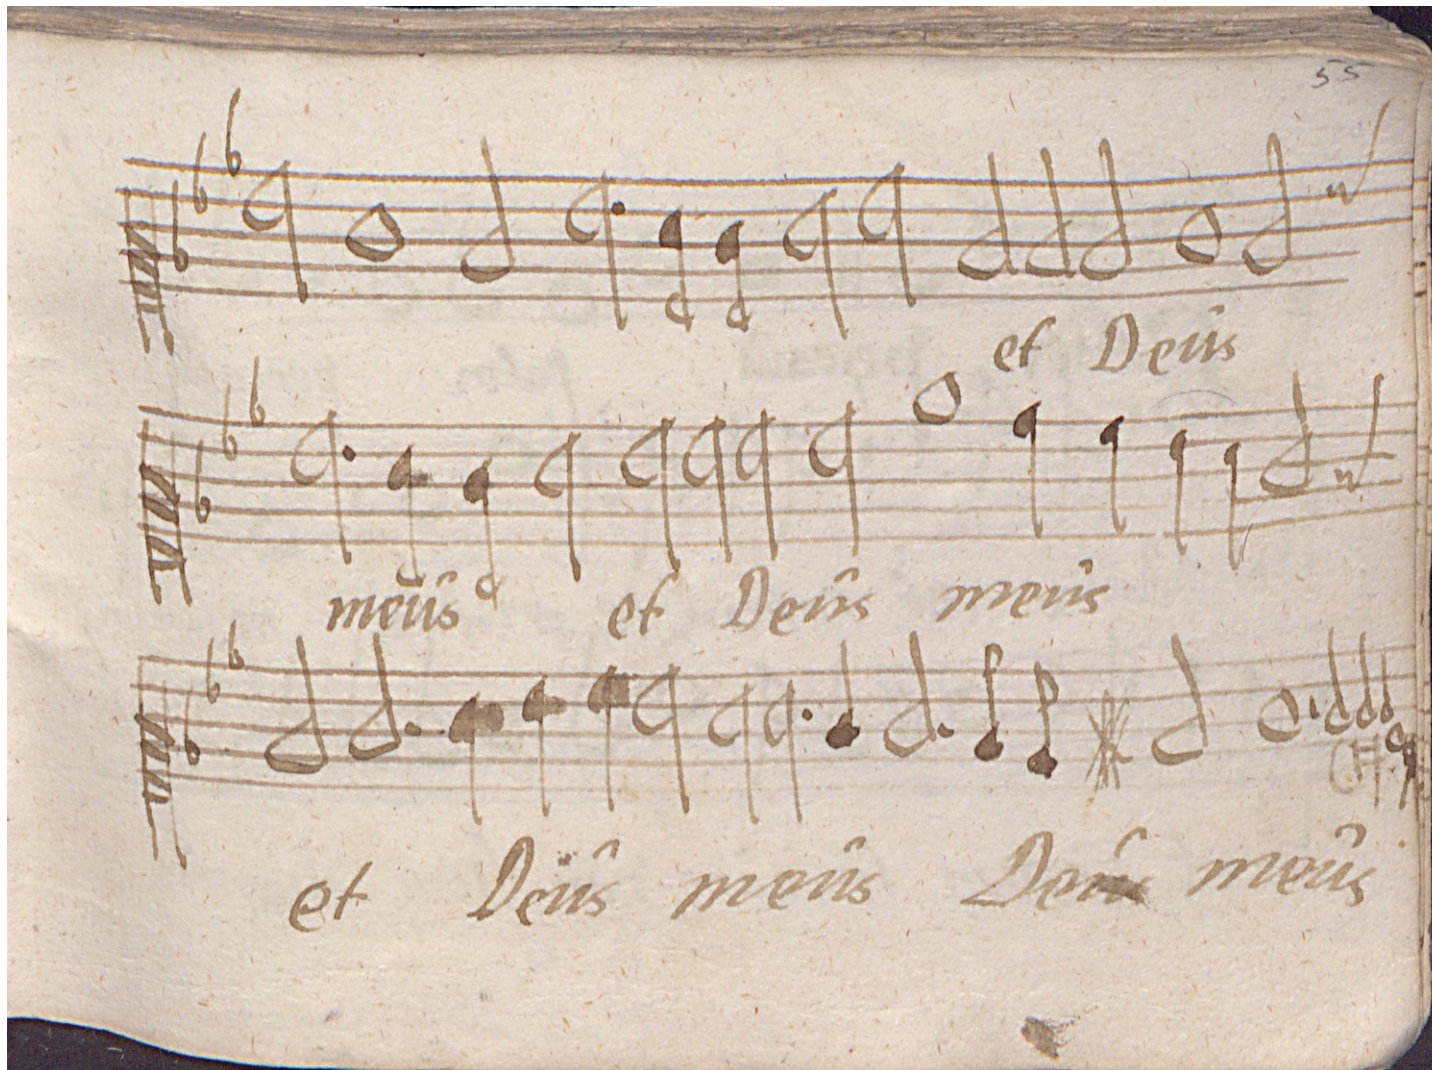 55
et Deûs
meûs et Deûs meûs
et Deûs meûs Deûs meûs